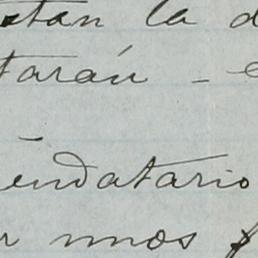 stan la d
tarán - e
endatario
r unos f